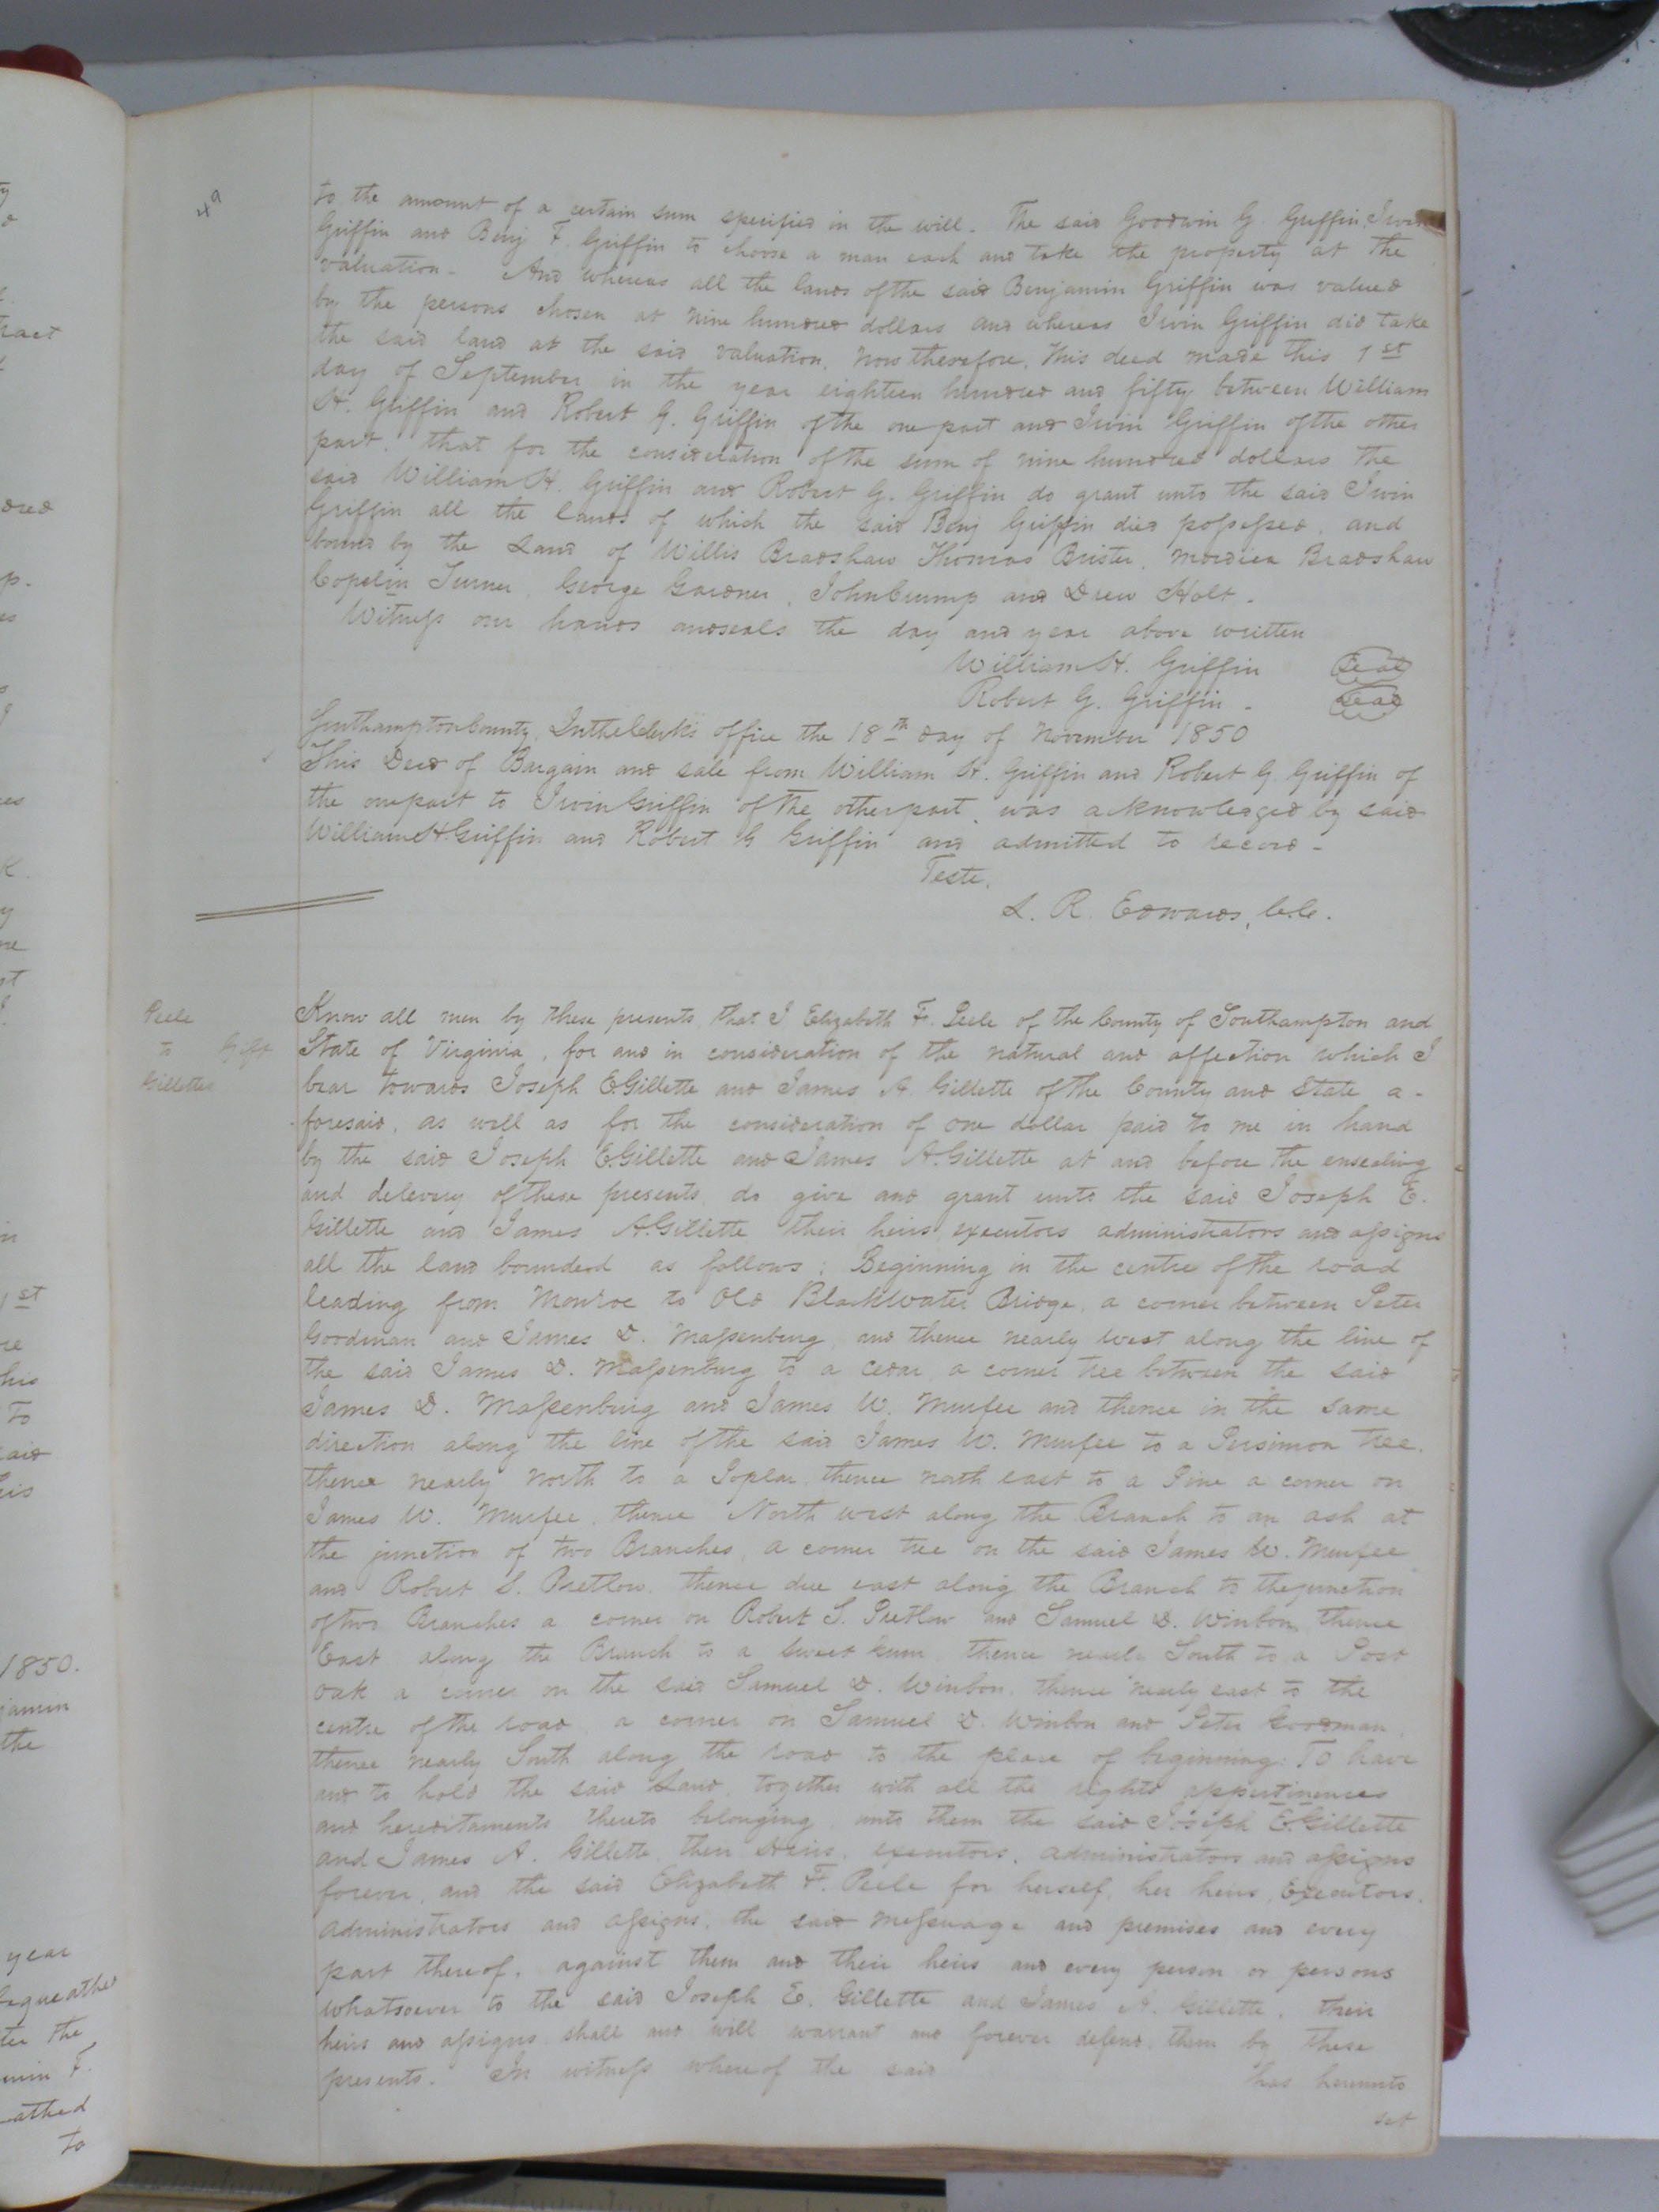 49
to the amount of a certain sum specified in the will. The said Goodwin G. Griffin, Irvin
Griffin and Benj F. Griffin to choose a man each and take the property at the
valuation. And whereas all the lands of the said Benjamin Griffin was valued
by the persons chosen at nine hundred dollars and whereas Irvin Griffin did take
the said land at the said valuation, now therefore, this deed made this 1st
day of September in the year eighteen hundred and fifty between William
H. Griffin and Robert G. Griffin of the one part and Irvin Griffin of the other
part, that for the consideration of the sum of nine hundred dollars the
said William H. Griffin and Robert G. Griffin do grant unto the said Irvin
Griffin all the lands of which the said Benj Griffin died possessed, and
bound by the Land of Willis Bradshaw Thomas Brister, Mordica Bradshaw
Copelin Turner, George Gardner, John Crump and Drew Holt.
Witness our hands and seals the day and year above written
William H. Griffin Seal
Robert G. Griffin. Seal
Southampton County, In the Clerk's office the 18th day of November 1850
This Deed of Bargain and sale from William H. Griffin and Robert G. Griffin of
the one part to Irvin Griffin of the other part, was acknowledged by said
William H Griffin and Robert G Griffin and admitted to record.
Teste,
L. R. Edwards, C.C.
Peele
to Gift
Gillettes
Know all men by these presents, that I Elizabeth F. Peele of the County of Southampton and
State of Virginia, for and in consideration of the natural and affection which I
bear towards Joseph E. Gillette and James A. Gillette of the County and State a-
foresaid, as well as for the consideration of one dollar paid to me in hand
by the said Joseph E. Gillette and James A. Gillette at and before the ensealing
and delevery of these presents, do give and grant unto the said Joseph E.
Gillette and James A. Gillette their heirs, executors administrators and assigns
all the land bounded as follows: Beginning in the centre of the road
leading from Monroe to Old BlackWater Bridge, a corner between Peter
Goodman and James D. Massenburg, and thence nearly west along the line of
the said James D. Massenburg to a cedar, a corner tree between the said
James D. Massenburg and James W. Murfee and thence in the same
direction along the line of the said James W. Murfee to a Persimon tree,
thence nearly north to a Poplar, thence north east to a Pine a corner on
James W. Murfee, thence North west along the Branch to an ash at
the junction of two Branches, a corner tree on the said James W. Murfee
and Robert S. Pretlow, thence due east along the Branch to the junction
of two Branches a corner on Robert S. Pretlow and Samuel D. Winbon, thence
East along the Branch to a Sweet kum, thence nearly South to a Post
oak a corner on the said Samuel D. Winbon, thence nearly east to the
centre of the road, a corner on Samuel D. Winbon and Peter Goodman,
thence nearly South along the road to the place of beginning: To have
and to hold the said Land, together with all the rights appurtinences
and hereditaments thereto belonging, unto them the said Joseph E. Gillette
and James A. Gillette, their Heirs, executors, administrators and assigns
forever, and the said Elizabeth F. Peele for herself, her heirs, Executors,
administrators and assigns, the said messuage and premises and every
part thereof, against them and their heirs and every person or persons
whatsoever to the said Joseph E. Gillette and James A. Gillette, their
heirs and assigns shall and will warrant and forever defend them by these
presents. In witness whereof the said has hereunto
set